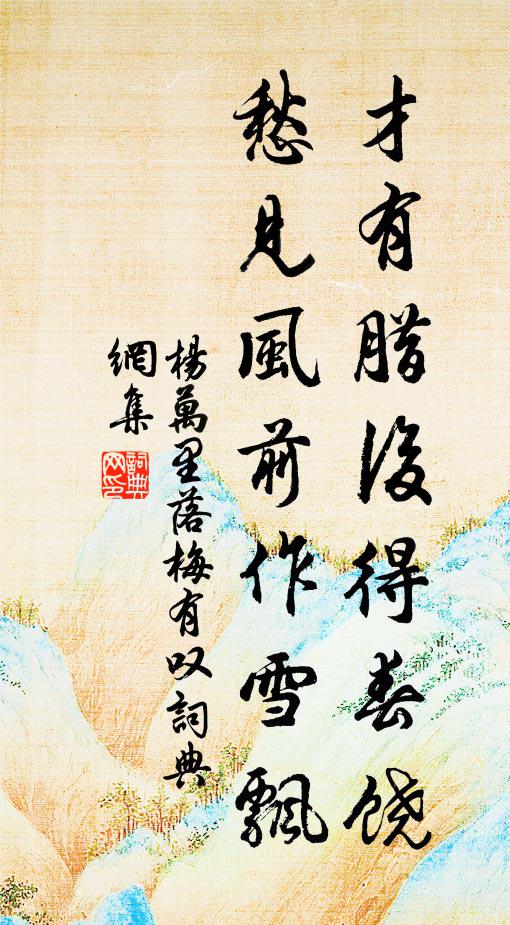 才有腊後得春饶
愁見風前作雪飄
楊萬里落梅有叹詞典
網集
詞典
网印